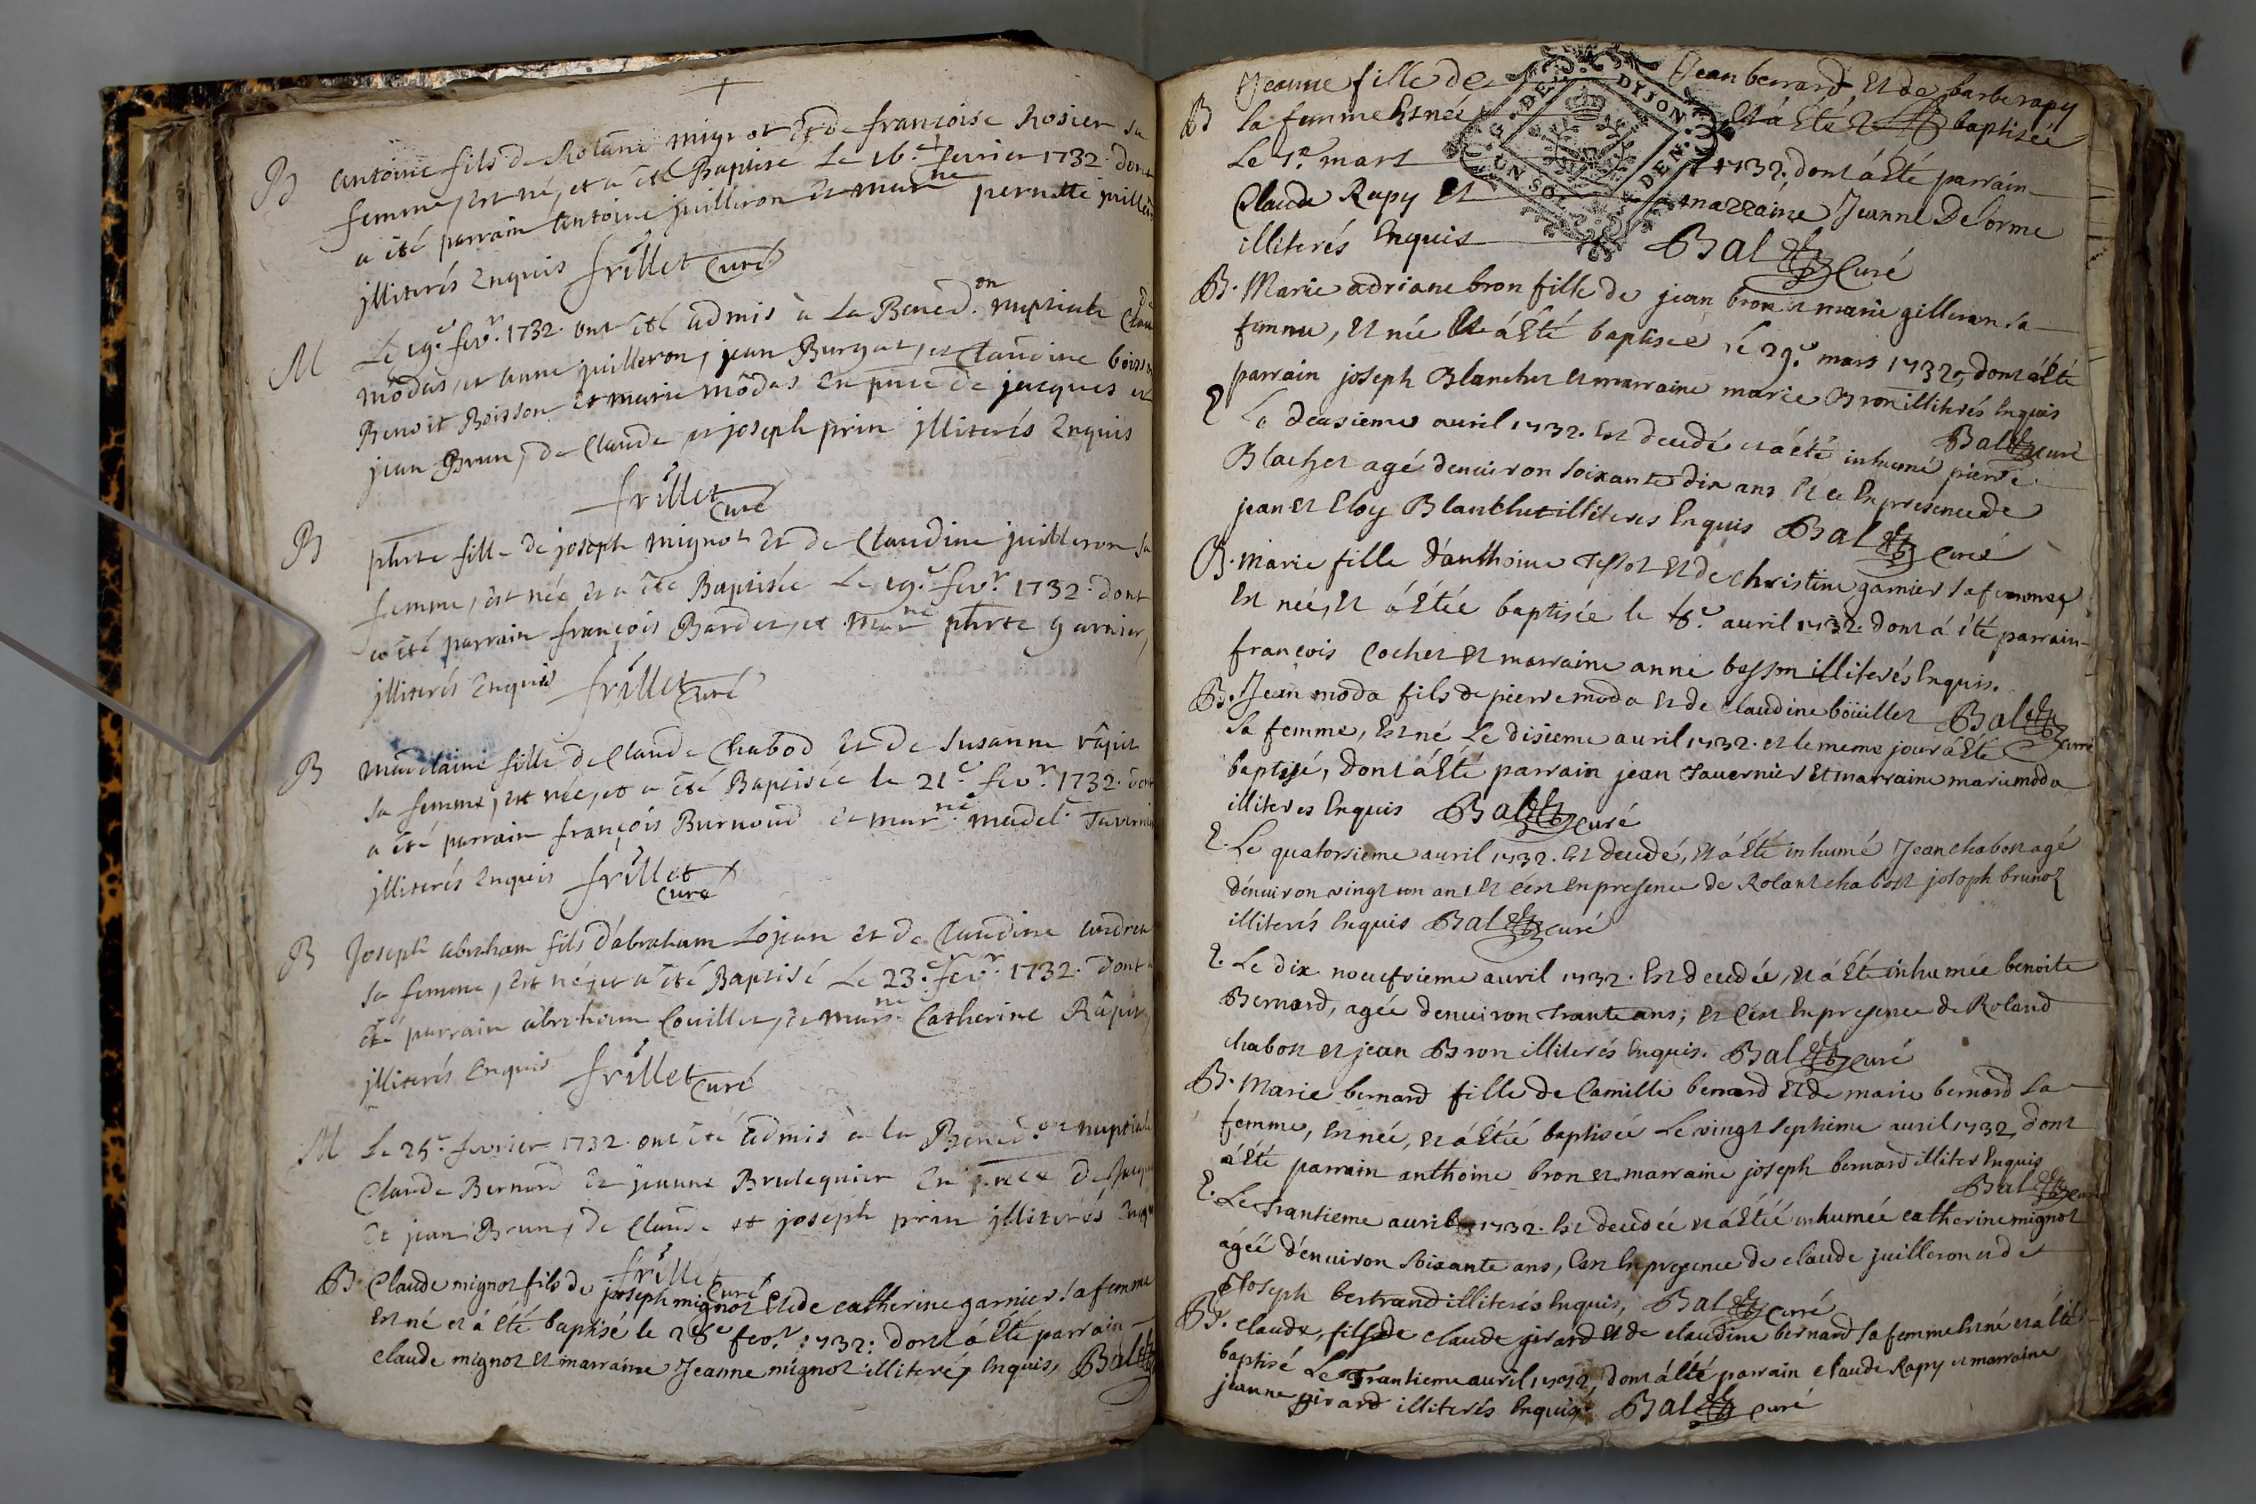 B antoine fils de Roland mignot Et de françoise Rosier sa
femme, est né, et a été Baptisé Le 16.e fevrier 1732. dont
a été parrain antoine juilleron Et marne pernette juiller
jlliterés Enquis frillet Curé
M Le 19.e fevr. 1732. ont été admis à La Bened.on nuptiale
môdas, et anne juilleron, jean Burgat, et Claudine boisson
Benoit Boisson Et marie môdas En pnce de jacques et
jean Brun, de Claude et joseph prin jlliterés Enquis
frillet Curé
B phrte fille de joseph mignot Et de Claudine juilleron sa
femme, est née et a été Baptisée Le 19.e fevr. 1732. dont
a été parrain françois Bardet, et marne phrte garnier,
jlliterés Enquis frillet Curé
B madelaine fille de Claude Chabod Et de Susanne râpit
sa femme, est née, et a été Baptisée le 21.e fevr. 1732. dont
a été parrain françois Burnoud Et marne madel.e Tavernier
jlliterés Enquis frillet Curé
B Joseph abraham fils d'abraham Lojean et de Claudine andrea
sa femme, est né, et a été Baptisé Le 23.e fevr. 1732. Dont
été parrain abraham Couillet, et marne Catherine Râpit,
jlliterés Enquis frillet Curé
M Le 25.e fevrier 1732. ont été admis à la Bened.on nuptiale
Claude Bernard Et jeanne Brulequier En pnce De Jacque
Et jean Brun, de Claude et joseph prin jlliterés Enqu
frillet Curé
B Claude mignot fils de joseph mignot Et de catherine garnier sa femme
Est né et á Eté baptisé le 28e fevr. 1732. dont á Eté parrain
claude mignot Et marraine Jeanne mignot illiterés Enquis, Bal
B Jeanne fille de Jean berrard, Et de barbe rapy
la femme Est née Et á Eté baptisée
DE DIJON
Le 1er mars 1732. dont á Eté parrain
UNSO DEN.
Claude Rapy Et marraine Jeanne Delorme
illiterés Enquis Bal Curé
B. Marie adriane bron fille de jean bron et marie gilleron sa
femme, Et née Et á Eté baptisée le 29.e mars 1732, dont á Eté
parrain joseph Blanchet et marraine marie Bron illiterés Enquis
Bal curé
Le deusieme auril 1732. Est decedé et á été inhumé pierre
Blachet agé denuiron soixante dix ans Et ce En presence de
jean Et Eloy Blanchet illiteres Enquis Bal Curé
B. Marie fille d'anthoine Tissot Et de christine garnier sa femme
Est née, Et á Etée baptisée le 8.e auril 1732. dont á été parrain
françois Cochet Et marraine anne besson illiterés Enquis.
B. Jean moda fils de pierre moda et de claudine boüillet Bal curé
sa femme, Est né Le disieme auril 1732. et le meme jour á Eté
baptisé, Dont á Eté parrain jean Tauernier Et marraine marie moda
illiteres Enquis Bal curé
Le quatorsieme auril 1732. Est decedé, Et á Eté inhumé Jean chabost agé
d'enuiron vingt un ans Et c'est En presence de Rolant chabost joseph brunot
illiterés Enquis Bal curé
Le dix neufsieme auril 1732. Est decedée, Et á Eté inhumée benoite
Bernard, agée denuiron trante ans, Et c'est En presence de Roland
chabost et jean Bron illiterés Enquis. Bal curé
B. Marie bernard fille de Camille bernard Et de marie bernard sa
femme, Est née, Et á Etéé baptiseé Le vingt septieme auril 1732, dont
á Eté parrain anthoine bron et marraine joseph bernard illiteres Enquis
Bal curé
Le Trantieme auril 1732. Est decedée et á Etéé inhumée catherine mignot
agéé d'enuiron soixante ans, c'est En presence de claude juilleron et de
Joseph bertrand illiterés Enquis, Bal Curé
B. claude, fils de claude girard Et de claudine bernard sa femme Est né et á Eté
baptisé Le Trantieme auril 1732, dont á Eté parrain claude Rapy et marraine
jeanne girard illiterés Enquis. Bal curé